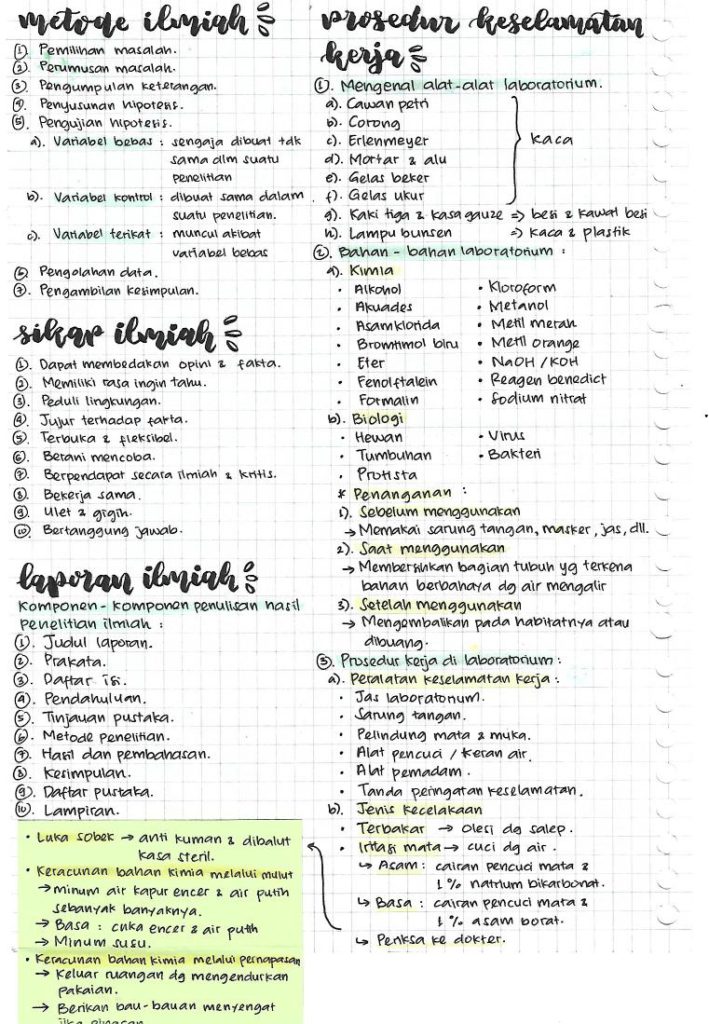 metode ilmiah
①. Pemilihan masalah.
②. Perumusan masalah.
③. Pengumpulan keterangan.
④. Penyusunan hipotesis.
⑤. Pengujian hipotesis.
a). Variabel bebas : sengaja dibuat tdk
sama dlm suatu
penelitian
b). Variabel kontrol : dibuat sama dalam
suatu penelitian.
c). Variabel terikat : muncul akibat
variabel bebas
⑥. Pengolahan data.
⑦. Pengambilan kesimpulan.
sikap ilmiah
①. Dapat membedakan opini & fakta.
②. Memiliki rasa ingin tahu.
③. Peduli lingkungan.
④. Jujur terhadap fakta.
⑤. Terbuka & fleksibel.
⑥. Berani mencoba.
⑦. Berpendapat secara ilmiah & kritis.
⑧. Bekerja sama.
⑨. Ulet & gigih.
⑩. Bertanggung jawab.
laporan ilmiah
Komponen - komponen penulisan hasil
Penelitian ilmiah :
①. Judul laporan.
②. Prakata.
③. Daftar isi.
④. Pendahuluan.
⑤. Tinjauan pustaka.
⑥. Metode penelitian.
⑦. Hasil dan pembahasan.
⑧. Kesimpulan.
⑨. Daftar pustaka.
⑩. Lampiran.
prosedur keselamatan
kerja
①. Mengenal alat-alat laboratorium.
a). Cawan petri
b). Corong
c). Erlenmeyer
d). Mortar & alu
e). Gelas beker
f). Gelas ukur
kaca
g). Kaki tiga & kasa gauze => besi & kawat besi
h). Lampu bunsen => kaca & plastik
②. Bahan - bahan laboratorium :
a). Kimia
• Alkohol
• Akuades
• Asam klorida
• Bromtimol biru
• Eter
• Fenolftalein
• Formalin
• Kloroform
• Metanol
• Metil merah
• Metil orange
• NaOH / KOH
• Reagen benedict
• Sodium nitrat
b). Biologi
• Hewan
• Tumbuhan
• Protista
• Virus
• Bakteri
* Penanganan :
1). Sebelum menggunakan
→ Memakai sarung tangan, masker, jas, dll.
2). Saat menggunakan
→ Membersihkan bagian tubuh yg terkena
bahan berbahaya dg air mengalir
3). Setelah menggunakan
→ Mengembalikan pada habitatnya atau
dibuang.
③. Prosedur kerja di laboratorium :
a). Peralatan keselamatan kerja :
• Jas laboratorium.
• Sarung tangan.
• Pelindung mata & muka.
• Alat pencuci / keran air.
• Alat pemadam.
• Tanda peringatan keselamatan.
b). Jenis kecelakaan
• Terbakar → olesi dg salep.
• Iritasi mata → cuci dg air.
↳ Asam : cairan pencuci mata &
1% natrium bikarbonat.
↳ Basa : cairan pencuci mata &
1% asam borat.
↳ Periksa ke dokter.
• Luka sobek → anti kuman & dibalut
kasa steril.
• Keracunan bahan kimia melalui mulut
→ minum air kapur encer & air putih
sebanyak banyaknya.
→ Basa : cuka encer & air putih
→ Minum susu.
• Keracunan bahan kimia melalui pernapasan
→ Keluar ruangan dg mengendurkan
pakaian.
→ Berikan bau-bauan menyengat
jika pingsan